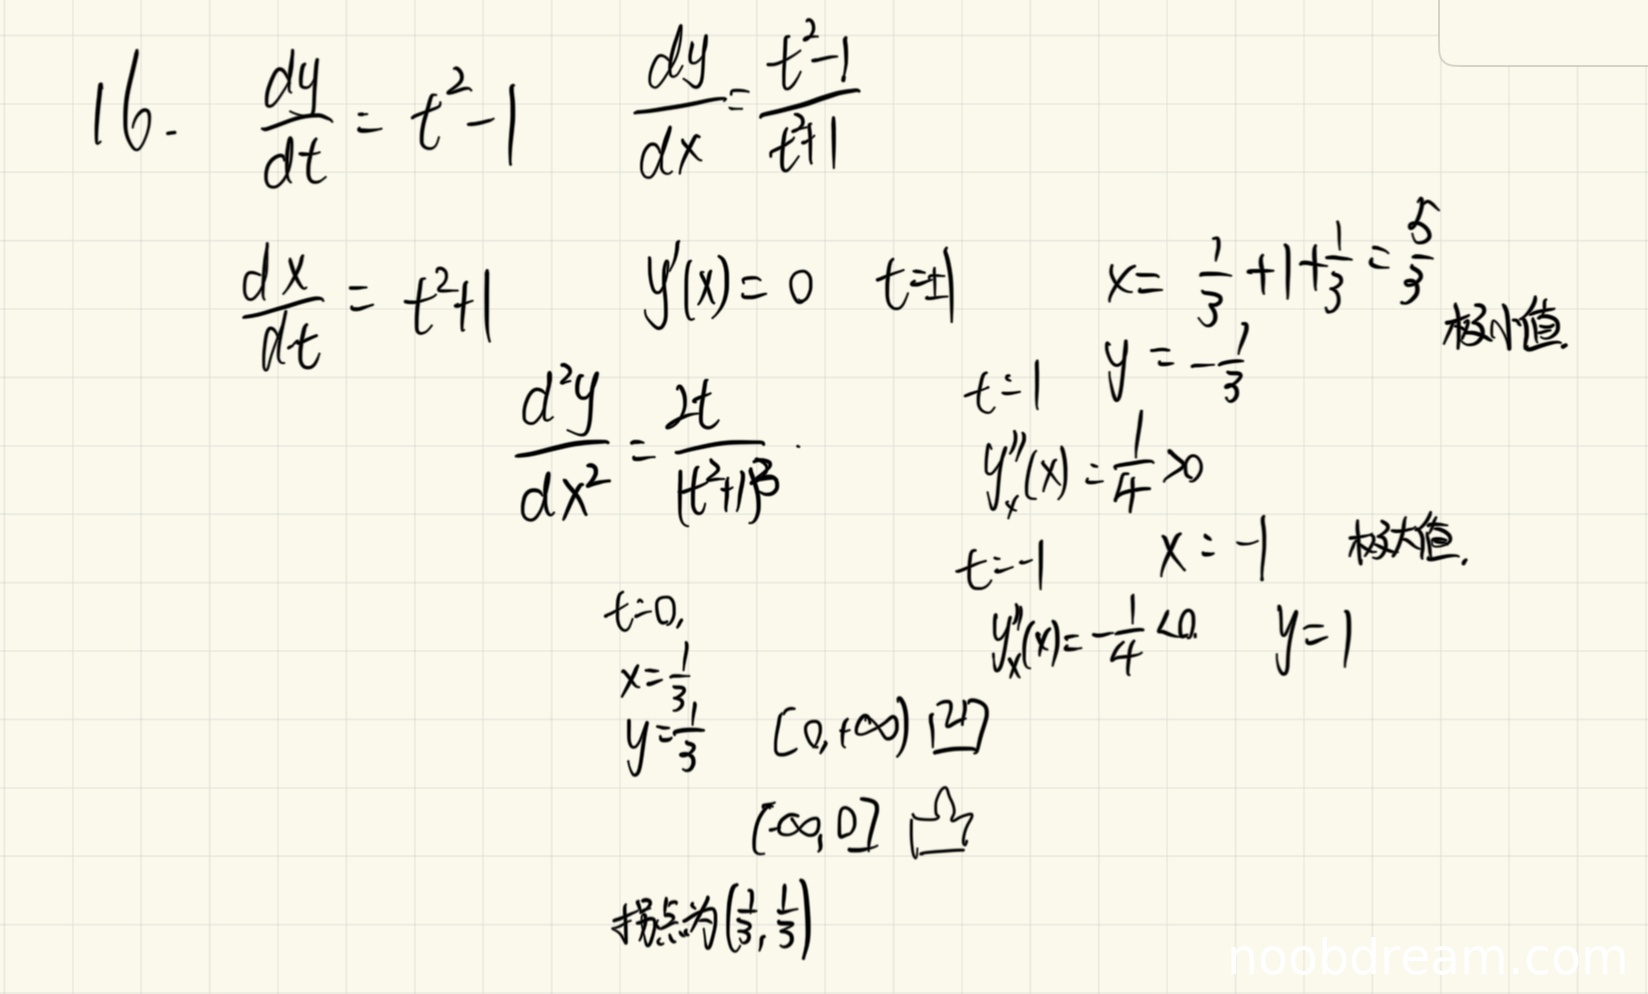 16. dy/dt = t²-1 dy/dx = (t²-1)/(t²+1)
dx/dt = t²+1 y'(x) = 0 t=±1 x = 1/3 + 1 + 1/3 = 5/3
y = -1/3 极小值.
d²y/dx² = 2t/(t²+1)³ . t=1
y''ₓ(x) = 1/4 >0
t=-1 x = -1 极大值.
y''ₓ(x) = -1/4 <0. y = 1
t=0,
x = 1/3
y = 1/3 [0,+∞) 凹
(-∞,0] 凸
拐点为(1/3, 1/3)
noobdream.com